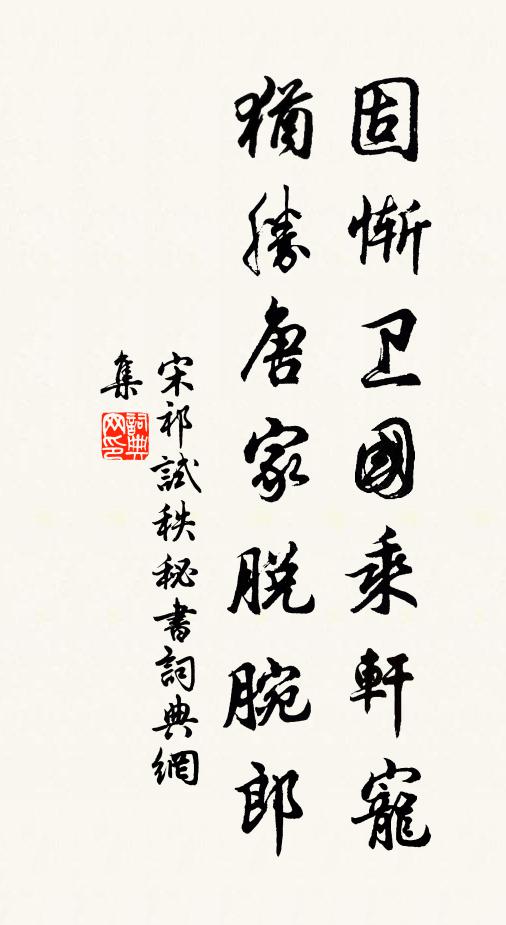 固惭卫國乘軒寵
猶勝唐家脱腕郎
宋祁試秩秘書詞典網
集
詞典
网印